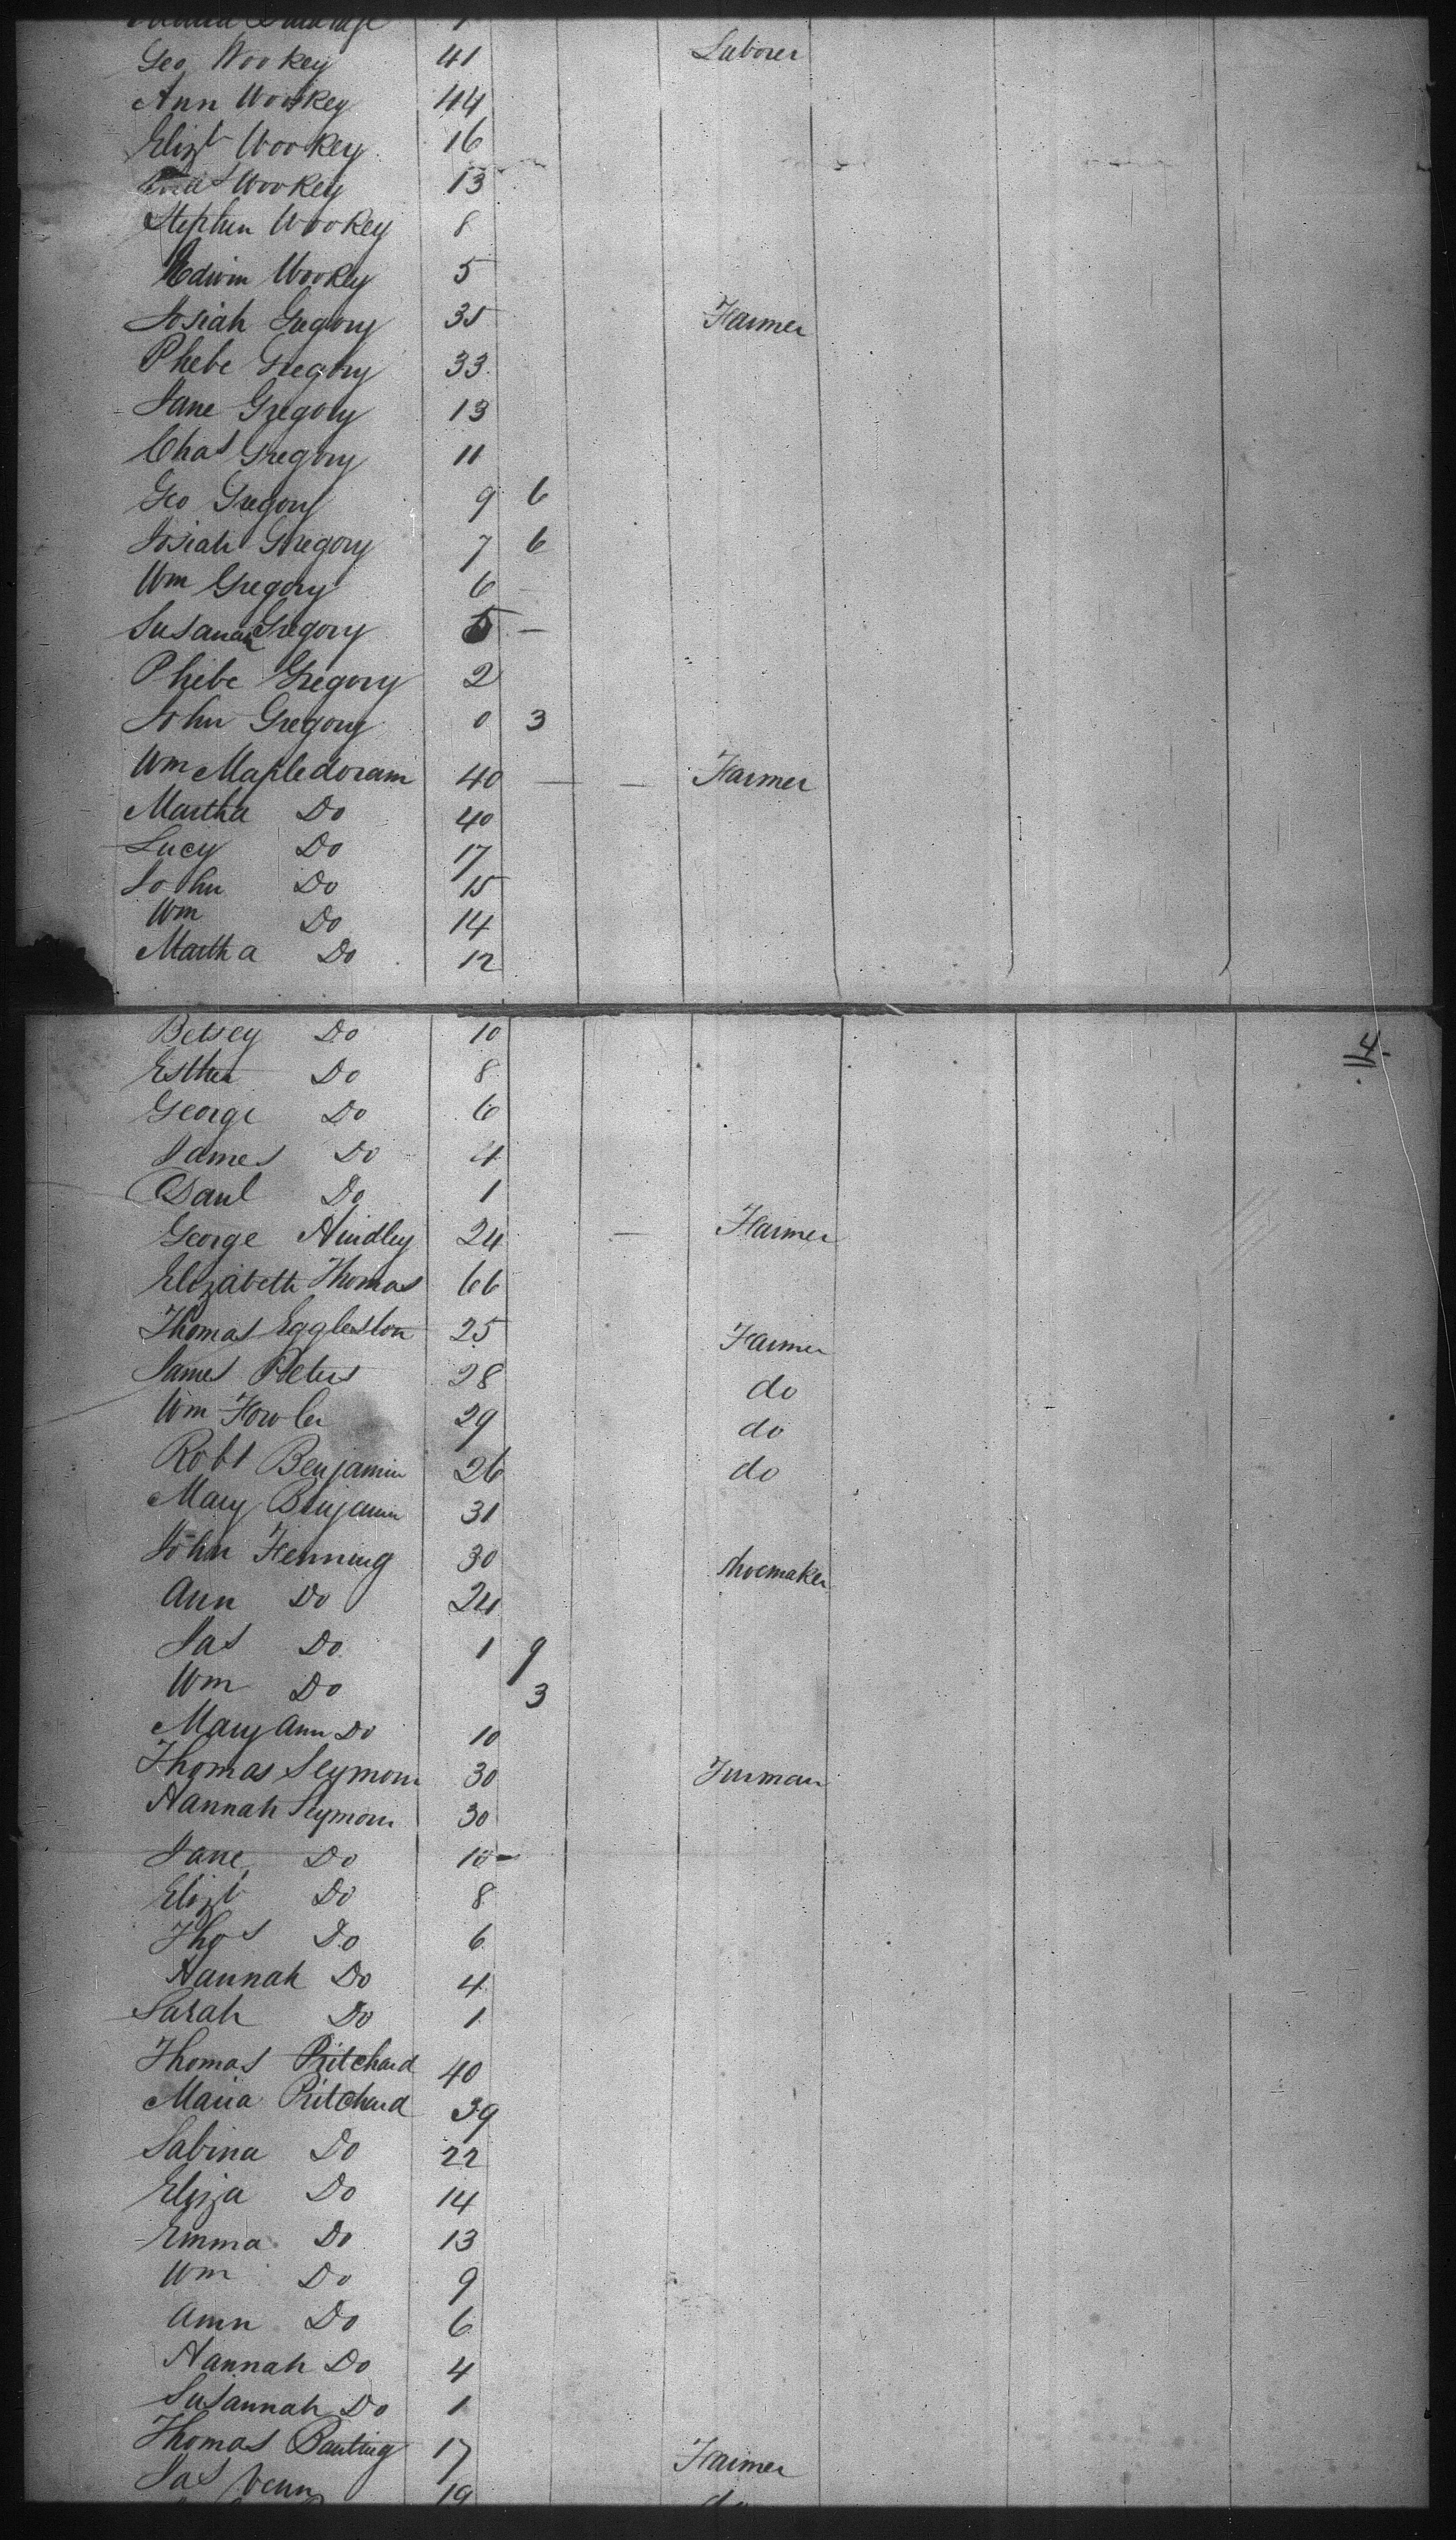 Geo Wookey 41 Laborer
Ann Wookey 44
Elizt Wookey 16
Wookey 13
Stephen Wookey 8
Edwin Wookey 5
Josiah Gregory 35 Farmer
Phebe Gregory 33
Jane Gregory 13
Chas Gregory 11
Geo Gregory 9 6
Josiah Gregory 7 6
Wm Gregory 6 —
Susanah Gregory 5 —
Phebe Gregory 2
John Gregory 0 3
Wm Mapledoram 40 — — Farmer
Martha Do 40
Lucy Do 17
John Do 15
Wm Do 14
Martha Do 12
Betsey Do 10
114
Esther Do 8
George Do 6
James Do 4
Saul Do 1
George Hindley 24 — Farmer
Elizabeth Thomas 66
Thomas Eggleston 25 Farmer
James Peters 28 do
Wm Fowler 29 do
Robt Benjamin 26 do
Mary Benjamin 31
John Fenning 30 Shoemaker
Ann Do 24
Jas Do 1 9
Wm Do 3
Mary Ann Do 10
Thomas Seymour 30
Hannah Seymour 30
Jane Do 10 —
Elizt Do 8
Thos Do 6
Hannah Do 4
Sarah Do 1
Thomas Pritchard 40
Maria Pritchard 39
Sabina Do 22
Eliza Do 14
Emma Do 13
Wm Do 9
Ann Do 6
Hannah Do 4
Susannah Do 1
Thomas Banting 17 Farmer
Jas Venn 19 do